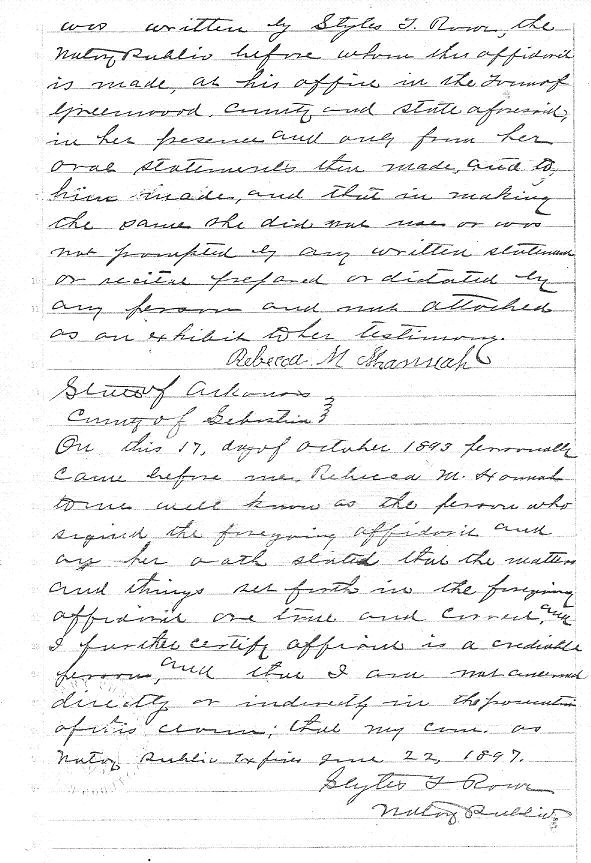 was written by Styles T. Rowe, the
Notary Public before whom this affidavit
is made, at his office in the Town of
Greenwood, County and state aforesaid,
in her presence and only from her
oral statements then made, and to
him made, and that in making
the same she did not use or was
not prompted by any written statement
or recital prepared or dictated by
any person and not attached
as an exhibit to her testimony.
Rebecca M Hannah
State of Arkansas
County of Sebastian
On this 17, day of October 1893 personally
came before me, Rebecca M. Hannah
to me well know as the person who
signed the foregoing affidavit and
on her oath stated that the matters
and things set forth in the foregoing
affidavit are true and correct, and
I further certify affiant is a credible
person, and that I am not concerned
directly or indirectly in the prosecution
of this claim; that my com. as
Notary Public Expires June 22, 1897.
Styles T Rowe
Notary Public